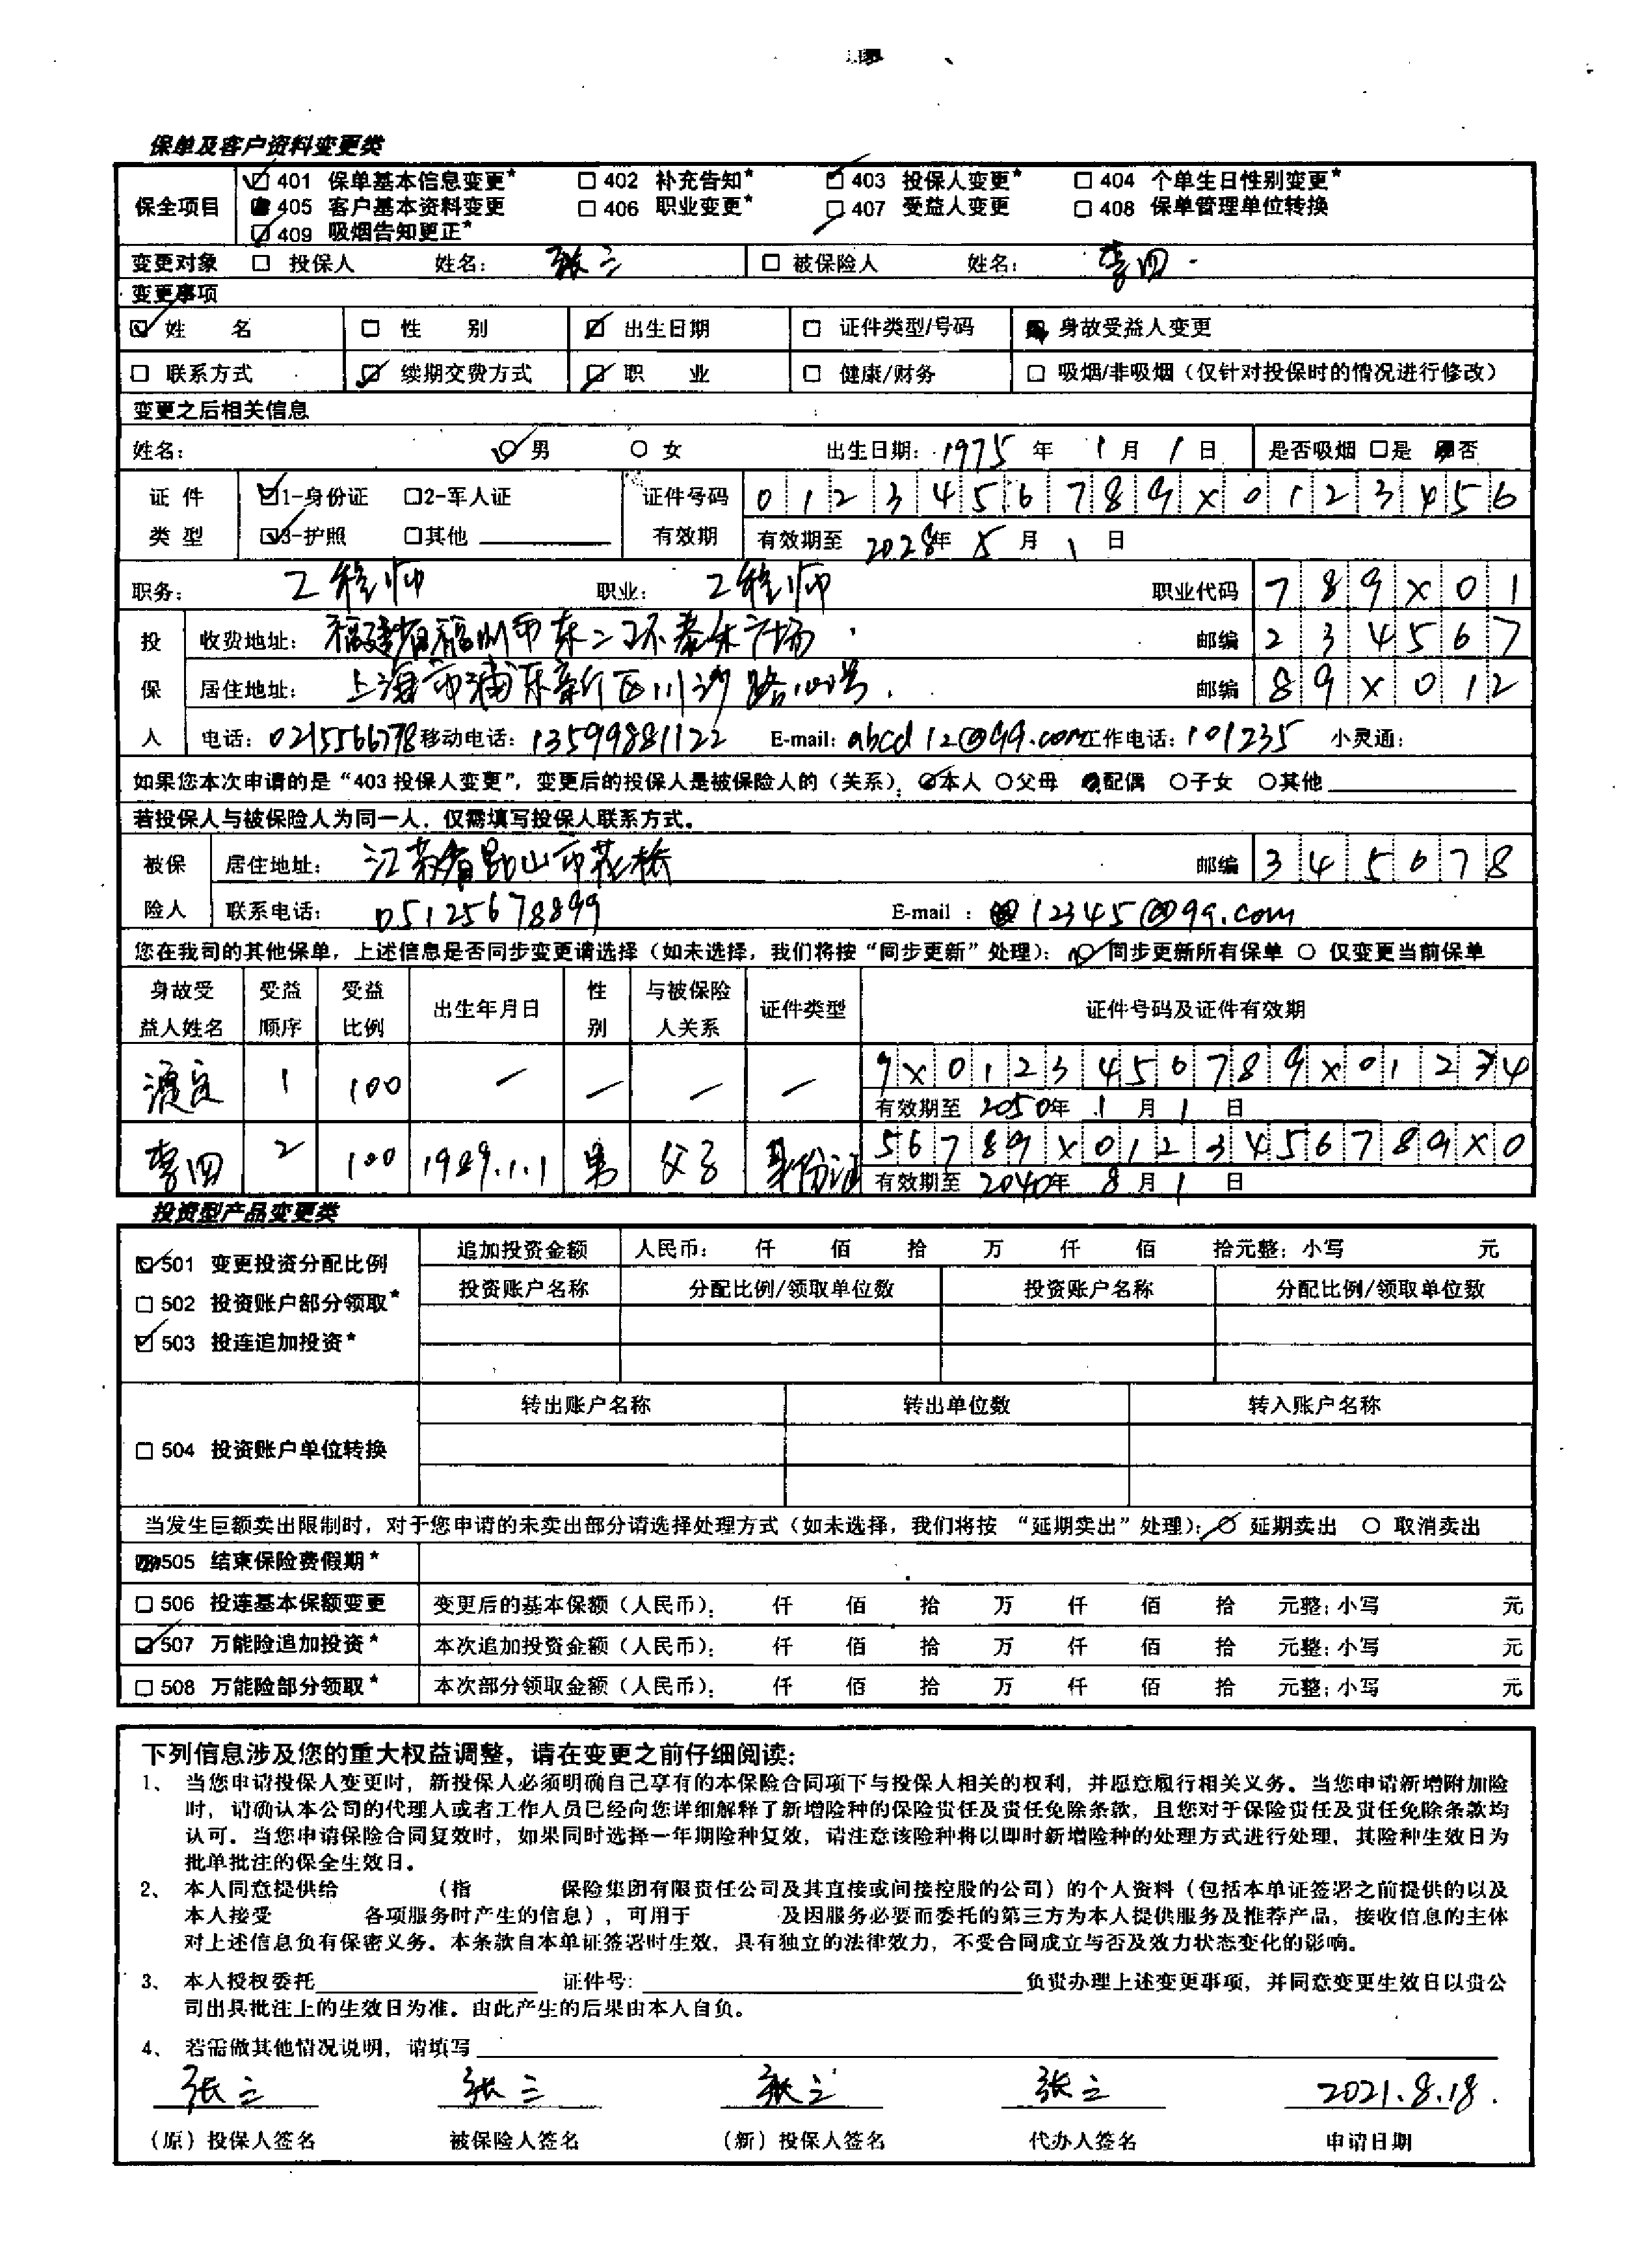 保单及客户资料变更类
保全项目 ☑ 401 保单基本信息变更* □ 402 补充告知* ☑ 403 投保人变更* □ 404 个单生日性别变更*
■ 405 客户基本资料变更 □ 406 职业变更* ☑ 407 受益人变更 □ 408 保单管理单位转换
☑ 409 吸烟告知更正*
变更对象 □ 投保人 姓名: 张三 □ 被保险人 姓名: 李四
变更事项
☑ 姓 名 □ 性 别 ☑ 出生日期 □ 证件类型/号码 ■ 身故受益人变更
□ 联系方式 ☑ 续期交费方式 ☑ 职 业 □ 健康/财务 □ 吸烟/非吸烟(仅针对投保时的情况进行修改)
变更之后相关信息
姓名: ☑ 男 ○ 女 出生日期: 1975 年 1 月 1 日 是否吸烟 □是 ■否
证 件 类 型 ☑1-身份证 □2-军人证 证件号码 0123456789X0123456
☑3-护照 □其他 有效期 有效期至 2028年 5 月 1 日
职务: 工程师 职业: 工程师 职业代码 789X01
投保人 收费地址: 福建省福州市东二环泰禾广场 邮编 234567
居住地址: 上海市浦东新区川沙路100号. 邮编 89X012
电话: 0215566778 移动电话: 13599881122 E-mail: abcd12@qq.com 工作电话: 101235 小灵通:
如果您本次申请的是“403 投保人变更”, 变更后的投保人是被保险人的(关系): ☑本人 ○父母 ●配偶 ○子女 ○其他
若投保人与被保险人为同一人, 仅需填写投保人联系方式。
被保险人 居住地址: 江苏省昆山市花桥 邮编 345678
联系电话: 05125678899 E-mail : 12345@qq.com
您在我司的其他保单, 上述信息是否同步变更请选择(如未选择, 我们将按“同步更新”处理): ☑ 同步更新所有保单 ○ 仅变更当前保单
身故受益人姓名 受益顺序 受益比例 出生年月日 性别 与被保险人关系 证件类型 证件号码及证件有效期
1 100 — — — — 9X0123456789X01234
有效期至 2050年 1 月 1 日
李四 2 100 1989.1.1 男 父子 身份证 56789X0123456789X0
有效期至 2040年 8 月 1 日
投资型产品变更类
☑ 501 变更投资分配比例 追加投资金额 人民币: 仟 佰 拾 万 仟 佰 拾元整; 小写 元
□ 502 投资账户部分领取* 投资账户名称 分配比例/领取单位数 投资账户名称 分配比例/领取单位数
☑ 503 投连追加投资*
转出账户名称 转出单位数 转入账户名称
□ 504 投资账户单位转换
当发生巨额卖出限制时, 对于您申请的未卖出部分请选择处理方式(如未选择, 我们将按 “延期卖出”处理): ☑ 延期卖出 ○ 取消卖出
■ 505 结束保险费假期*
□ 506 投连基本保额变更 变更后的基本保额(人民币): 仟 佰 拾 万 仟 佰 拾 元整; 小写 元
☑ 507 万能险追加投资* 本次追加投资金额(人民币): 仟 佰 拾 万 仟 佰 拾 元整; 小写 元
□ 508 万能险部分领取* 本次部分领取金额(人民币): 仟 佰 拾 万 仟 佰 拾 元整; 小写 元
下列信息涉及您的重大权益调整, 请在变更之前仔细阅读:
1、 当您申请投保人变更时, 新投保人必须明确自己享有的本保险合同项下与投保人相关的权利, 并愿意履行相关义务。当您申请新增附加险
时, 请确认本公司的代理人或者工作人员已经向您详细解释了新增险种的保险责任及责任免除条款, 且您对于保险责任及责任免除条款均
认可。当您申请保险合同复效时, 如果同时选择一年期险种复效, 请注意该险种将以即时新增险种的处理方式进行处理, 其险种生效日为
批单批注的保全生效日。
2、 本人同意提供给 (指 保险集团有限责任公司及其直接或间接控股的公司) 的个人资料(包括本单证签署之前提供的以及
本人接受 各项服务时产生的信息), 可用于 及因服务必要而委托的第三方为本人提供服务及推荐产品, 接收信息的主体
对上述信息负有保密义务。本条款自本单证签署时生效, 具有独立的法律效力, 不受合同成立与否及效力状态变化的影响。
3、 本人授权委托 证件号: 负责办理上述变更事项, 并同意变更生效日以贵公
司出具批注上的生效日为准。由此产生的后果由本人自负。
4、 若需做其他情况说明, 请填写
张三 张三 张三 张三 2021.8.18.
(原) 投保人签名 被保险人签名 (新) 投保人签名 代办人签名 申请日期